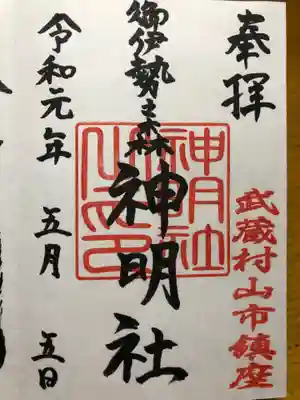 奉拝
武蔵村山市鎮座
御伊勢之森
神明社
神明社
令和元年 五月 五日